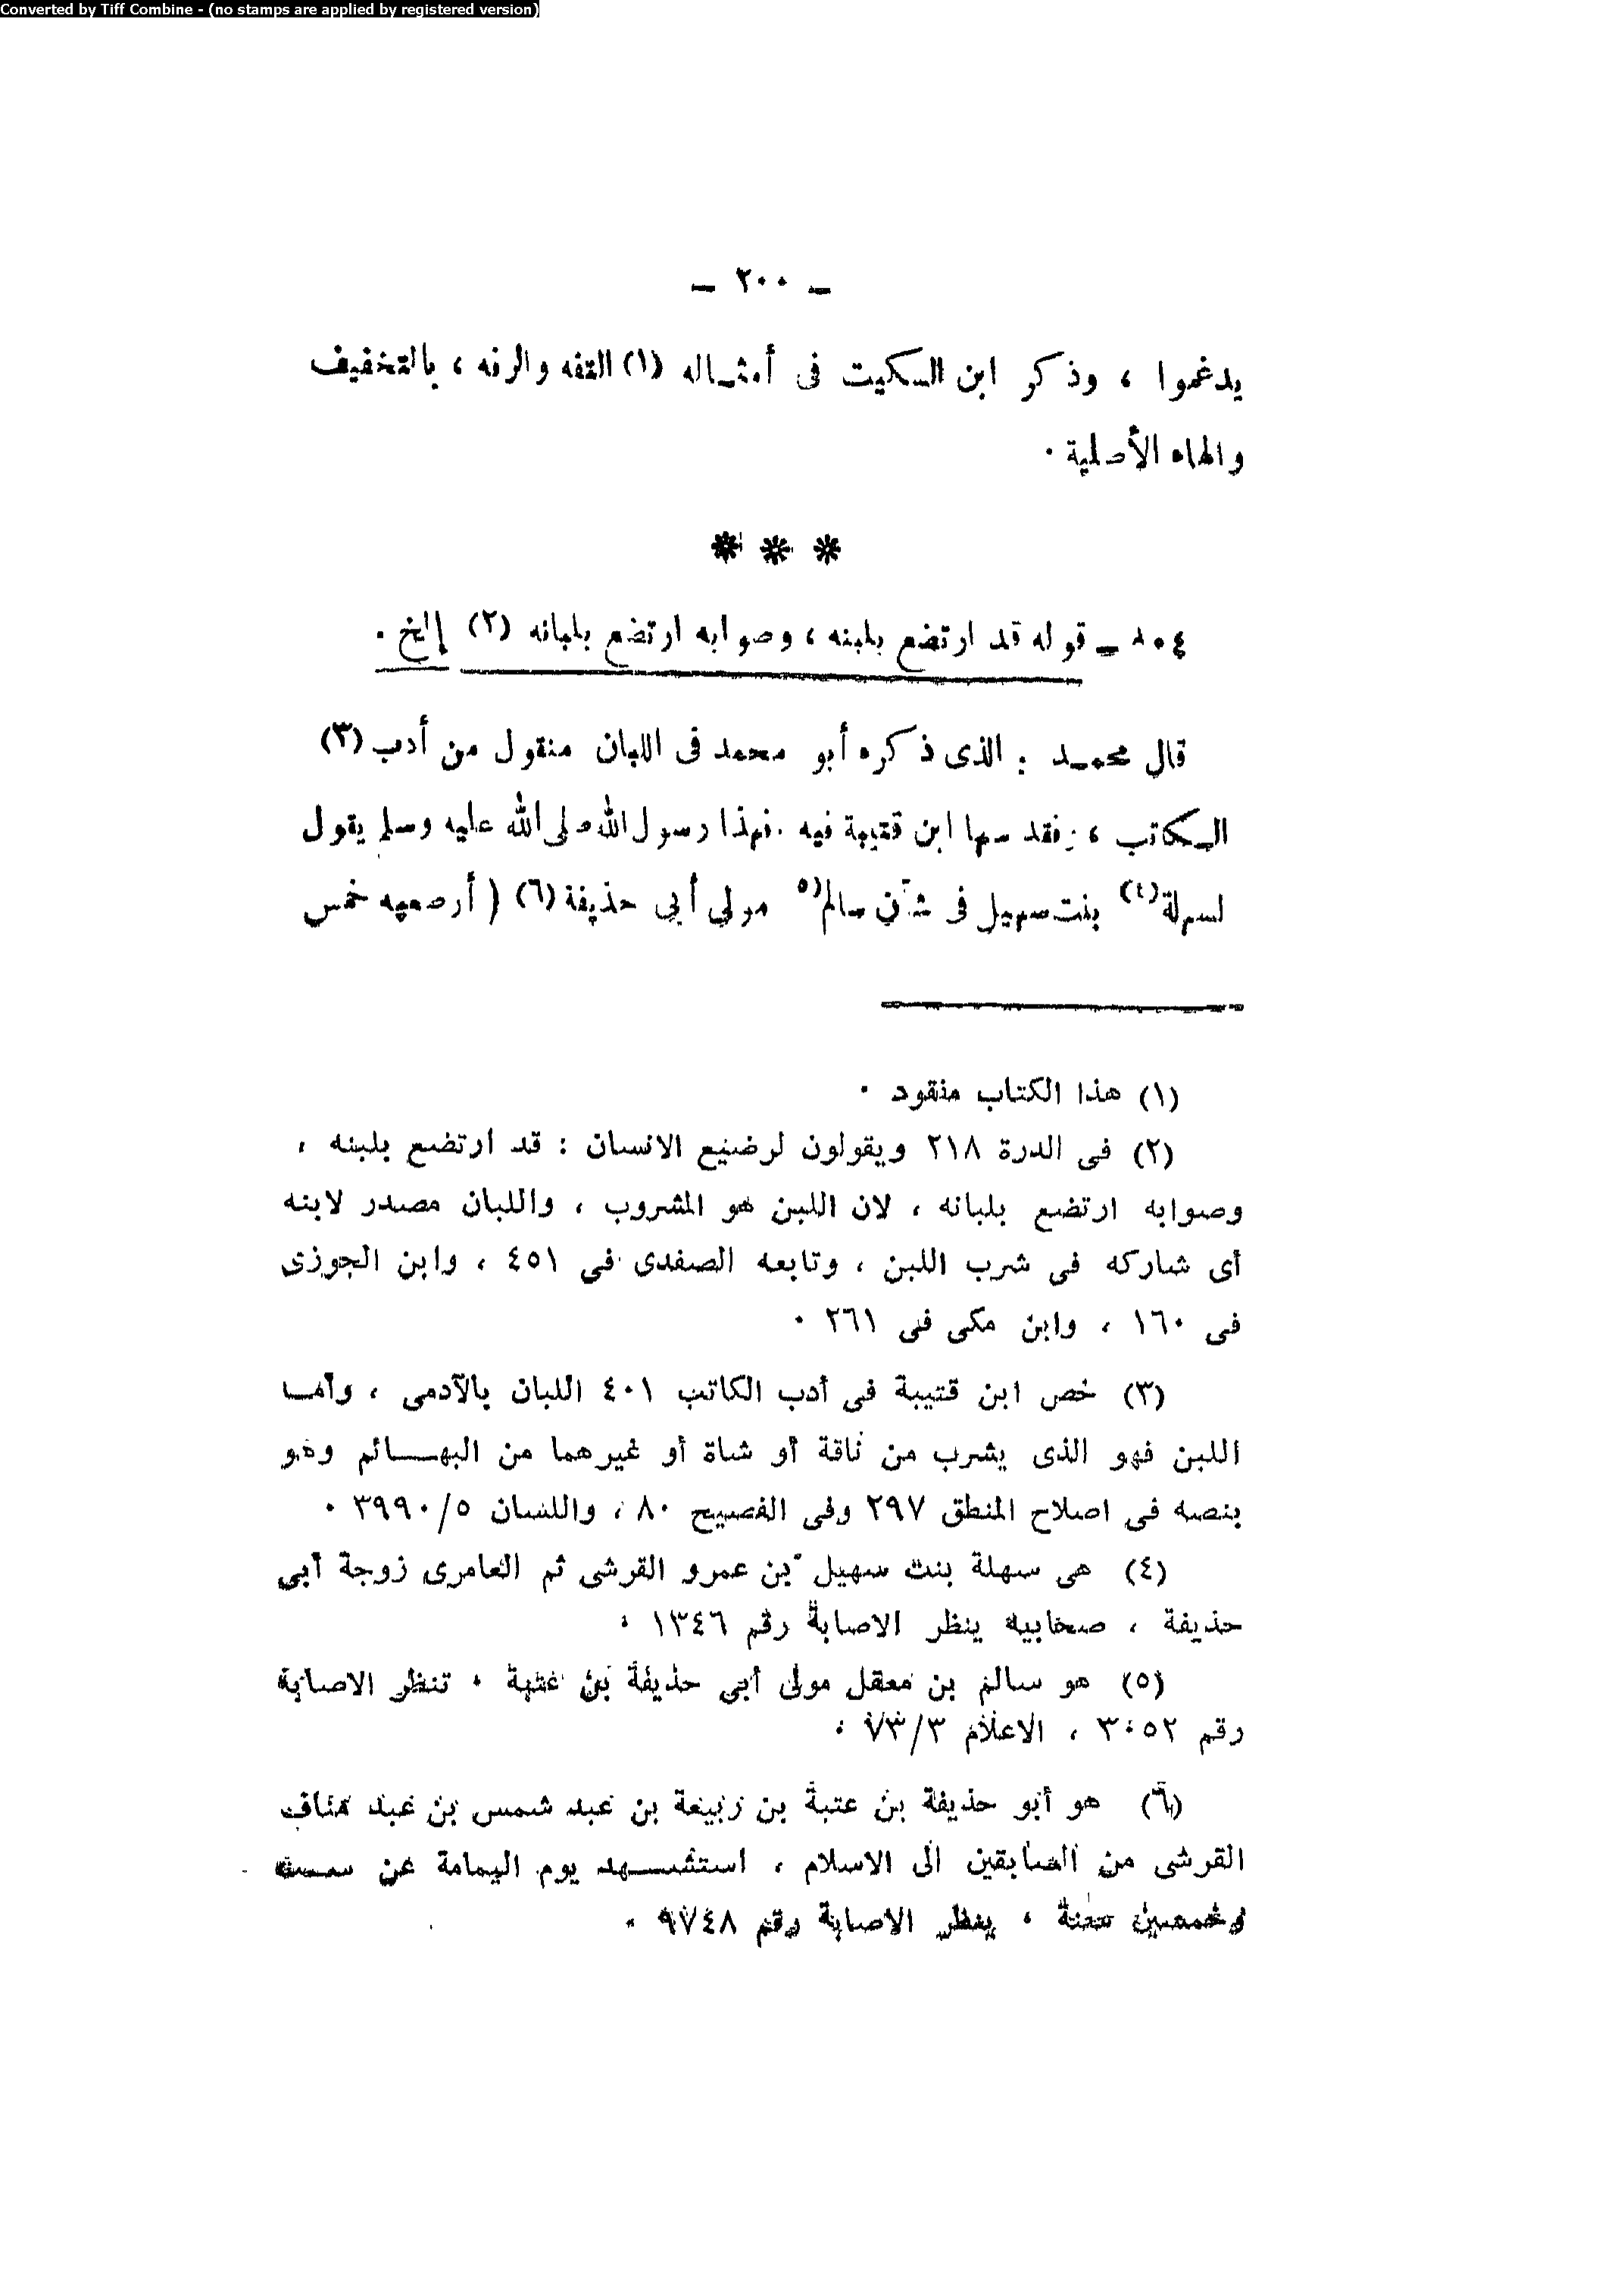 Converted by Tiff Combine - (no stamps are applied by registered version)
ـ ٢٠٠ ـ
يدغموا ، وذكر ابن السكيت فى أمثـاله (١) التفه والرفه ، بالتخفيف
والهاء الأصلية .
* * *
قوله قد ارتضع بلبنه ، وصوابه ارتضع بلبانه (٢) إلخ .
قال محمـد : الذى ذكره أبو محمد فى اللبان منقول من أدب (٣)
الـكاتب ، فقد سها ابن قتيبة فيه . فهذا رسول الله صلى الله عليه وسلم يقول
لسهلة (٤) بنت سهيل فى شأن سالم (٥ مولى أبى حذيفة (٦) ( أرضعيه خمس
(١) هذا الكتاب منقود .
(٢) فى الدرة ٢١٨ ويقولون لرضيع الانسان : قد ارتضع بلبنه ،
وصوابه ارتضع بلبانه ، لان اللبن هو المشروب ، واللبان مصدر لابنه
أى شاركه فى شرب اللبن ، وتابعه الصفدى فى ٤٥١ ، وابن الجوزى
فى ١٦٠ ، وابن مكى فى ٢٦١ .
(٣) خص ابن قتيبة فى أدب الكاتب ٤٠١ اللبان بالآدمى ، وأمـا
اللبن فهو الذى يشرب من ناقة أو شاة أو غيرهما من البهـــائم وهو
بنصه فى اصلاح المنطق ٢٩٧ وفى الفصيح ٨٠ ، واللسان ٣٩٩٠/٥ .
(٤) هى سهلة بنت سهيل بن عمرو القرشى ثم العامرى زوجة أبى
حذيفة ، صحابيه ينظر الاصابة رقم ١٣٤٦ .
(٥) هو سالم بن معقل مولى أبى حذيفة بن عتبة . تنظر الاصابة
رقم ٣٠٥٢ ، الاعلام ٧٣/٣ .
(٦) هو أبو حذيفة بن عتبة بن ربيعة بن عبد شمس بن عبد مناف
القرشى من السابقين الى الاسلام ، استشـــهد يوم اليمامة عن ســـت
وخمسين سنة ، ينظر الاصابة رقم ٩٧٤٨ .